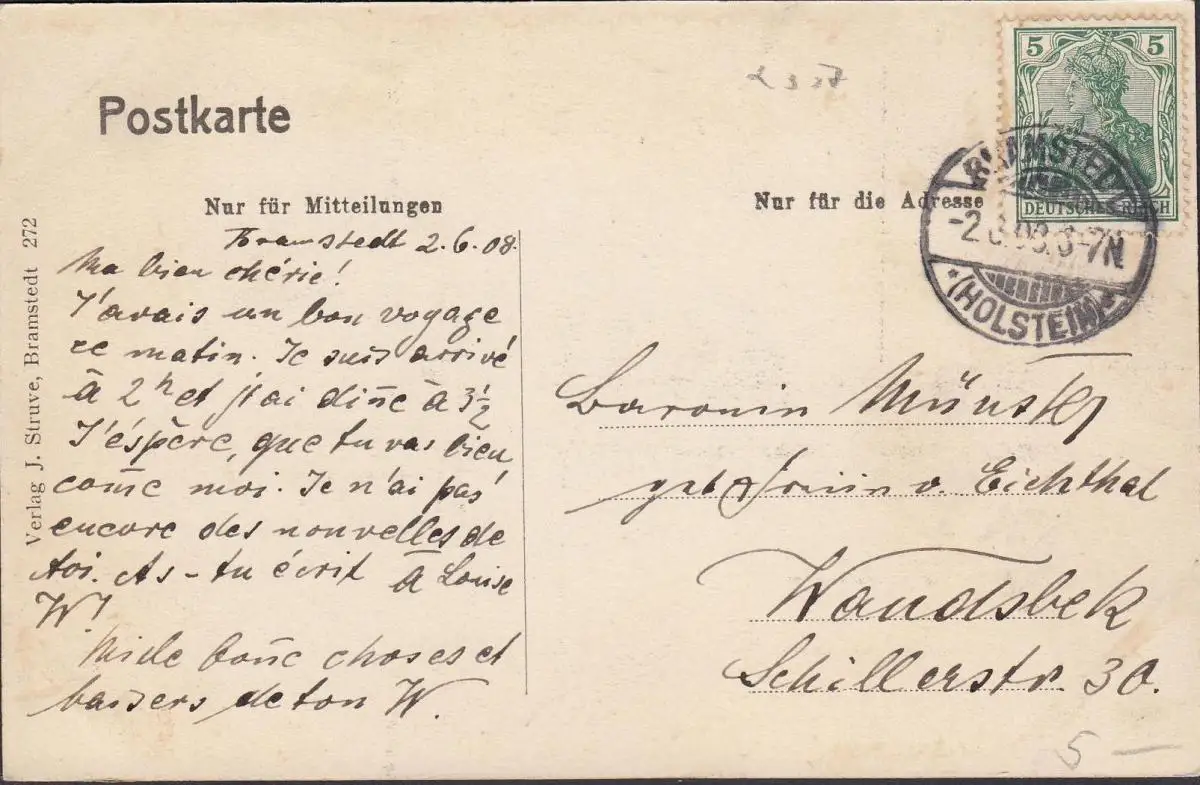 Postkarte
Nur für Mitteilungen
Bramstedt 2.6.08.
Ma bien chérie!
J'avais un bon voyage
ce matin. Je suis arrivé
à 2 h et j'ai diñé à 3½
J'éspère, que tu vas bien
com̄e moi. Je n'ai pas
encore des nouvelles de
toi. As-tu écrit à Louise
W!
Mille bon̄e choses et
baisers de ton W.
Verlag J. Struve, Bramstedt 272
Nur für die Adresse
5 5
DEUTSCHES REICH
BRAMSTEDT
-2.6.08.6-7N.
*(HOLSTEIN)*
Baronin Münster
geb Freiin v. Eichthal
Wandsbek
Schillerstr. 30.
5 —